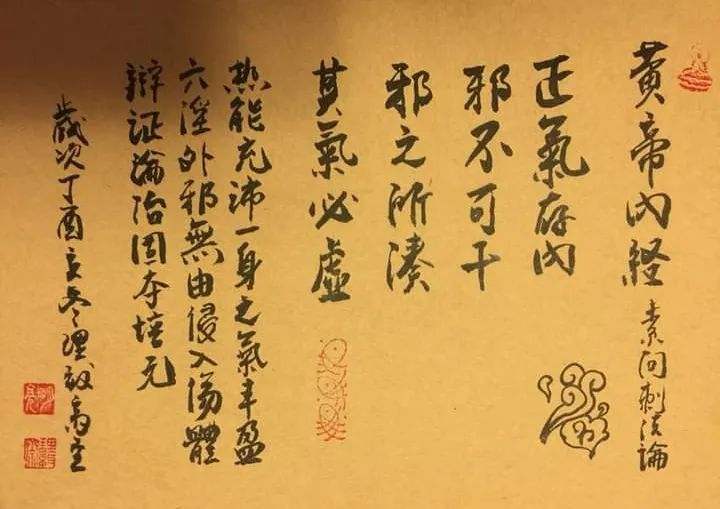 黄帝内経 素问刺法論
正氣存内
邪不可干
邪之所凑
其氣必虚
热能充沛一身之氣丰盈
六淫外邪無由侵入傷體
辯证論治固夲培元
歲次丁酉立冬理